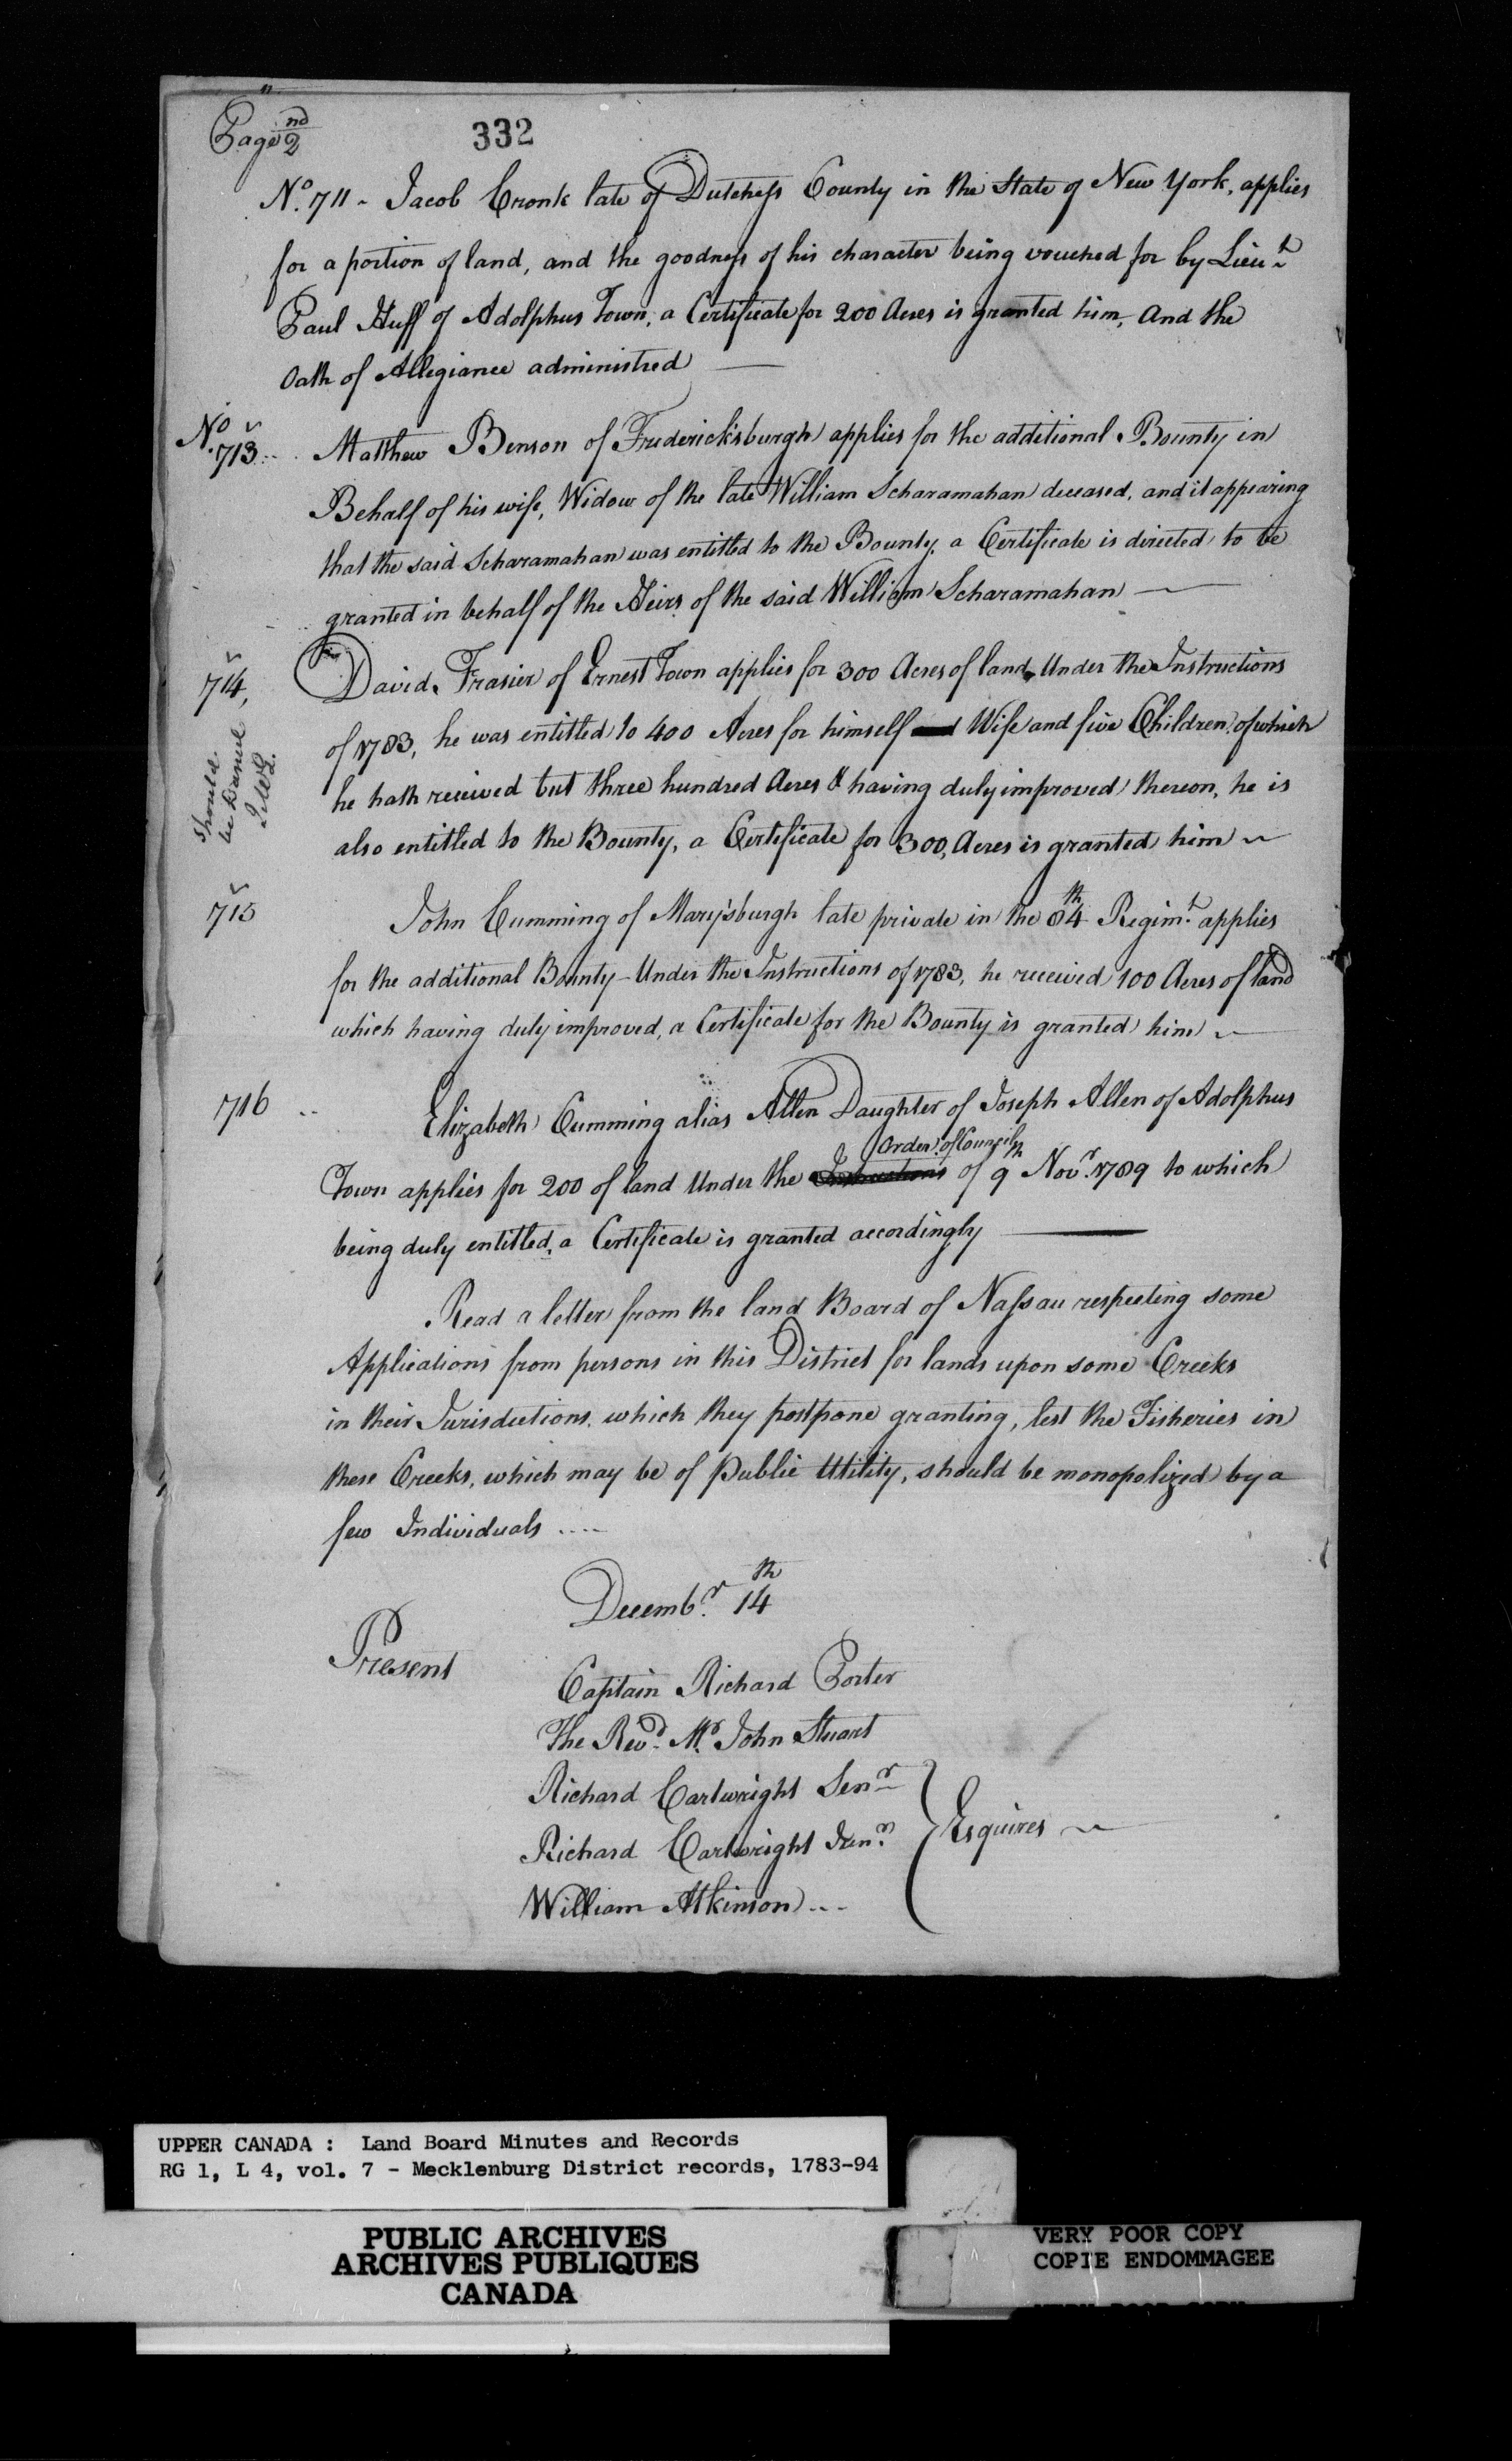 Page 2nd
332
No. 711 - Jacob Cronk late of Dutchess County in the State of New York, applies
for a portion of land, and the goodness of his character being vouched for by Lieut
Paul Huff of Adolphus Town, a Certificate for 200 Acres is granted him, And the
Oath of Allegiance administred
No 713 Matthew Benson of Fredericksburgh applies for the additional Bounty in
Behalf of his wife, Widow of the late William Scharamahan deceased, and it appearing
that the said Scharamahan was entitled to the Bounty, a Certificate is directed to be
granted in behalf of the Heirs of the said William Scharamahan
714, David Frasier of Ernest Town applies for 300 Acres of land, Under the Instructions
of 1783, he was entitled to 400 Acres for himself Wife and five Children, of which
he hath received but three hundred Acres & having duly improved thereon, he is
also entitled to the Bounty, a Certificate for 300, Acres is granted him
should
be Daniel
715 John Cumming of Marysburgh late private in the 84th Regimt. applies
for the additional Bounty - Under the Instructions of 1783, he received 100 Acres of land
which having duly improved, a Certificate for the Bounty is granted him
716 Elizabeth Cumming alias Allen Daughter of Joseph Allen of Adolphus
Order of Council
Town applies for 200 of land Under the Instructions of 9th Novr. 1789 to which
being duly entitled, a Certificate is granted accordingly
Read a letter from the land Board of Nassau respecting some
Applications from persons in this District for lands upon some Creeks
in their Jurisdictions, which they postpone granting, lest the Fisheries in
these Creeks, which may be of Public Utility, should be monopolized by a
few Individuals ....
Decembr. 14th
Present
Captain Richard Porter
The Revd. Mr. John Stuart
Richard Cartwright Senr
Richard Cartwright Junr.
Esquires
William Atkinson ...
UPPER CANADA : Land Board Minutes and Records
RG 1, L 4, vol. 7 - Mecklenburg District records, 1783-94
PUBLIC ARCHIVES
ARCHIVES PUBLIQUES
CANADA
VERY POOR COPY
COPIE ENDOMMAGEE
VERY POOR COPY